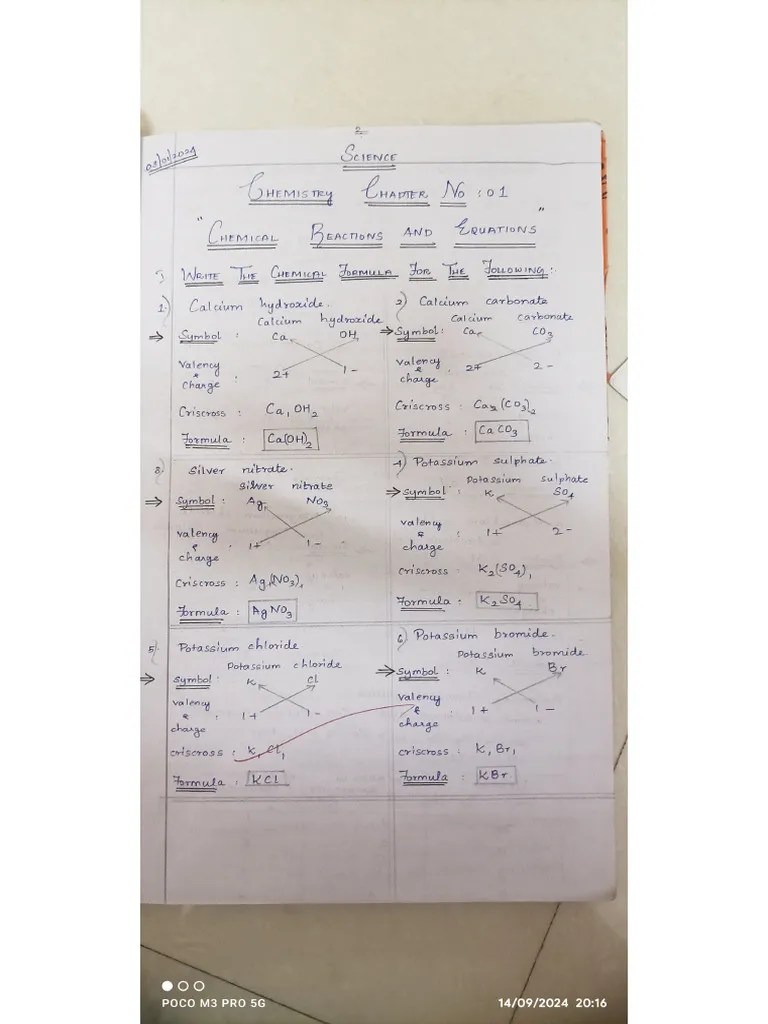 2
03/01/2024
SCIENCE
CHEMISTRY CHAPTER NO : 01
"CHEMICAL REACTIONS AND EQUATIONS"
WRITE THE CHEMICAL FORMULA FOR THE FOLLOWING:
1) Calcium hydroxide.
Calcium hydroxide
⇒ Symbol : Ca OH
Valency & charge : 2+ 1-
Criscross : Ca₁OH₂
Formula : Ca(OH)₂
2) Calcium carbonate
Calcium carbonate
⇒ Symbol : Ca CO₃
Valency & charge : 2+ 2-
Criscross : Ca₂(CO₃)₂
Formula : CaCO₃
3) Silver nitrate.
Silver nitrate
⇒ Symbol : Ag NO₃
Valency & charge : 1+ 1-
Criscross : Ag₁(NO₃)₁
Formula : AgNO₃
4) Potassium sulphate.
Potassium sulphate
⇒ Symbol : K SO₄
Valency & charge : 1+ 2-
Criscross : K₂(SO₄)₁
Formula : K₂SO₄
5) Potassium chloride
Potassium chloride
⇒ Symbol : K Cl
Valency & charge : 1+ 1-
Criscross : K₁Cl₁
Formula : KCl
6) Potassium bromide.
Potassium bromide
⇒ Symbol : K Br
Valency & charge : 1+ 1-
Criscross : K₁Br₁
Formula : KBr
POCO M3 PRO 5G
14/09/2024 20:16